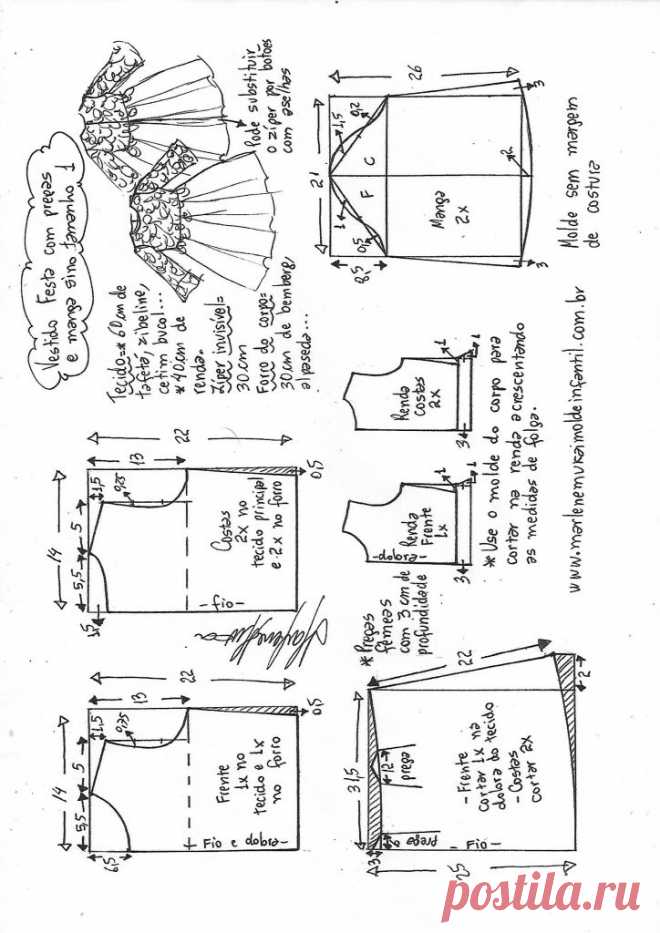 Vestido Festa com pregas
e manga sino tamanho 1
Tecido=* 60cm de
tafetá, zibeline,
cetim bucol...
* 40cm de
renda.
Zíper invisível=
30cm
Forro do corpo=
30cm de bemberg,
alpaseda...
Pode substituir
o zíper por botões
com aselhas
21
26
8,5
1
0,5
1,5
0,2
F
C
Manga
2x
2
3
3
Molde sem margem
de costura
14
5,5
5
1,5
0,75
13
22
1,5
Costas
2x no
tecido principal
e 2x no forro
-fio-
0,5
Renda
costas
2x
3
1
1
Renda
Frente
1x
-dobra-
3
1
1
* Use o molde do corpo para
cortar na renda acrescentando
as medidas de folga.
www.marlenemukaimoldeinfantil.com.br
14
5,5
5
1,5
0,75
13
22
6,5
Frente
1x no
tecido e 1x
no forro
Fio e dobra-
0,5
* Pregas
fêmeas
com 3cm de
profundidade
31,5
22
12
prega
6
prega
3
25
2
- Frente
cortar 1x na
dobra do tecido
- Costas
cortar 2x
- Fio-
postila.ru